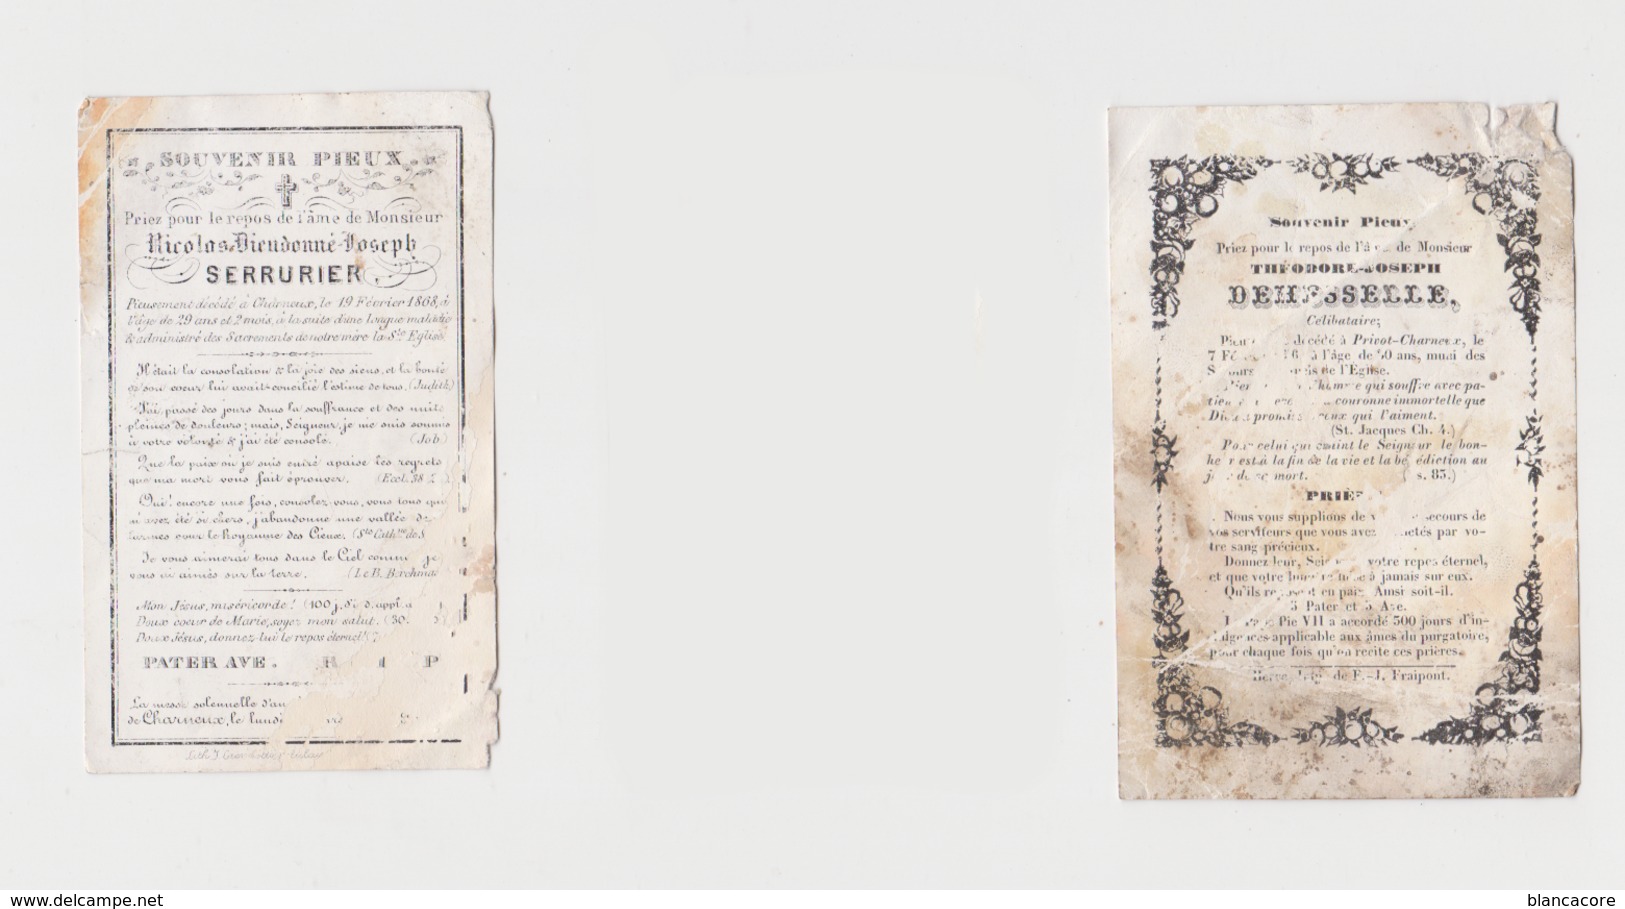 SOUVENIR PIEUX
Priez pour le repos de l'âme de Monsieur
Nicolas-Dieudonné-Joseph
SERRURIER.
Pieusement décédé à Charneux, le 19 Février 1868, à
l'âge de 29 ans et 2 mois, à la suite d'une longue maladie
& administré des Sacrements de notre mère la Ste Eglise.
Il était la consolation & la joie des siens, et la bonté
de son coeur lui avait concilié l'estime de tous. (Judith)
J'ai passé des jours dans la souffrance et des nuits
pleines de douleurs; mais, Seigneur, je me suis soumis
à votre volonté & j'ai été consolé. (Job)
Que la paix où je suis entré apaise les regrets
que ma mort vous fait éprouver. (Eccl. 38
Qui! encore une fois, consolez-vous, vous tous qui
m'avez été si chers, j'abandonne une vallée de
larmes pour le Royaume des Cieux. (Ste Cathne de S
Je vous aimerai tous dans le Ciel comme je
vous ai aimés sur la terre. (Le B. Berchma
Mon Jésus, miséricorde! (100 j. d'i. d. appl. a
Doux coeur de Marie, soyez mon salut. (30.
Doux Jésus, donnez-lui le repos éternel! (7
PATER AVE. R I P
La messe solennelle d'an
de Charneux, le lundi
Lith. J.
Souvenir Pieux
Priez pour le repos de l'â e de Monsieur
THÉODORE-JOSEPH
DEHESSELLE,
Célibataire;
Pieu décédé à Privot-Charneux, le
7 Fé 6 à l'âge de 50 ans, muni des
S ours is de l'Église.
ien homme qui souffre avec pa-
tien ere couronne immortelle que
Dieu a promis ceux qui l'aiment.
(St. Jacques Ch. 4.)
Pour celui qui craint le Seigneur le bon-
he r est à la fin de la vie et la bé édiction au
j de sa mort. ( s. 83.)
PRIÈ
Nous vous supplions de v ecours de
vos serviteurs que vous avez etés par vo-
tre sang précieux.
Donnez leur, Sei votre repos éternel,
et que votre lumière luise à jamais sur eux.
Qu'ils reposent en paix. Ainsi soit-il.
5 Pater et 5 Ave.
Le Pape Pie VII a accordé 500 jours d'in-
dulgences applicable aux âmes du purgatoire,
pour chaque fois qu'on recite ces prières.
Herve, Imp. de F.-J. Fraipont.
www.delcampe.net
blancacore